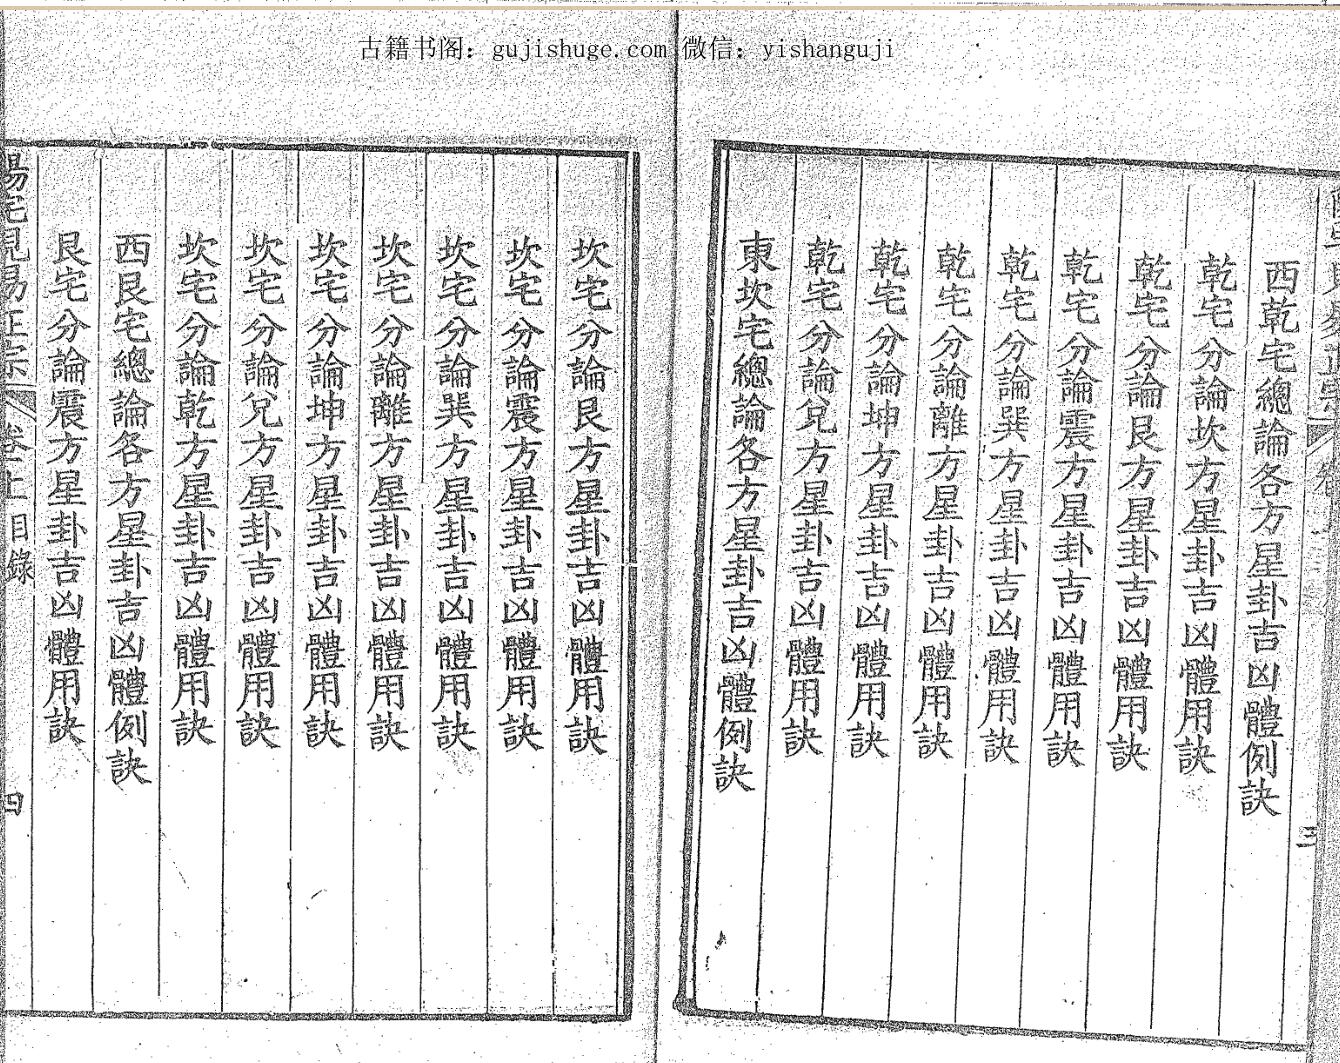 古籍书阁：gujishuge.com 微信：yishanguji
西乾宅總論各方星卦吉凶體例訣
乾宅分論坎方星卦吉凶體用訣
乾宅分論艮方星卦吉凶體用訣
乾宅分論震方星卦吉凶體用訣
乾宅分論巽方星卦吉凶體用訣
乾宅分論離方星卦吉凶體用訣
乾宅分論坤方星卦吉凶體用訣
乾宅分論兌方星卦吉凶體用訣
東坎宅總論各方星卦吉凶體例訣
三
坎宅分論艮方星卦吉凶體用訣
坎宅分論震方星卦吉凶體用訣
坎宅分論巽方星卦吉凶體用訣
坎宅分論離方星卦吉凶體用訣
坎宅分論坤方星卦吉凶體用訣
坎宅分論兌方星卦吉凶體用訣
坎宅分論乾方星卦吉凶體用訣
西艮宅總論各方星卦吉凶體例訣
艮宅分論震方星卦吉凶體用訣
陽宅見易正宗 卷上目錄 四